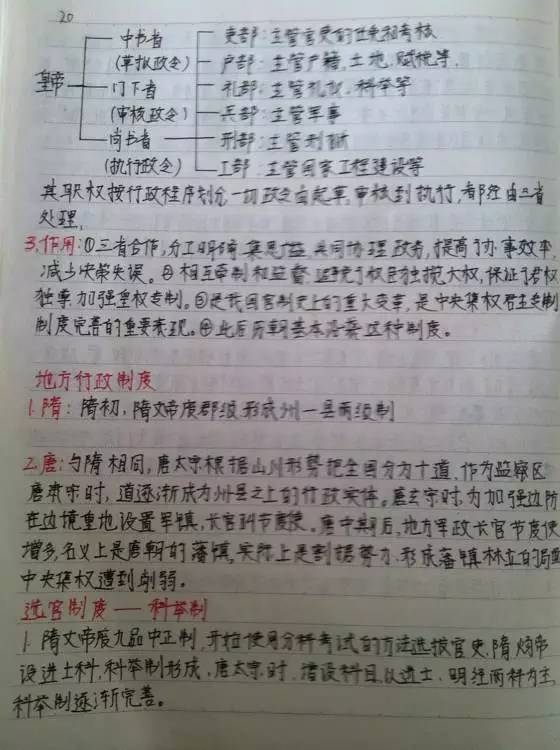 20
中书省 吏部:主管官吏的任免和考核
(草拟政令) 户部:主管户籍,土地,赋税等.
皇帝 门下省 礼部:主管礼仪,科举等
(审核政令) 兵部:主管军事
尚书省 刑部:主管刑狱
(执行政令) 工部:主管国家工程建设等
其职权按行政程序划分 一切政令由起草,审核到执行,都经由三省
处理.
3.作用:①三省合作,分工明确 集思广益,共同协理政务,提高了办事效率,
减少决策失误。②相互牵制和监督,避免了权臣独揽大权,保证了君权
独尊,加强皇权专制。③是我国官制史上的重大变革,是中央集权君主专制
制度完善的重要表现。④此后历朝基本沿袭这种制度。
地方行政制度
1.隋:隋初,隋文帝废郡级,形成州一县两级制
2.唐:与隋相同,唐太宗根据山川形势把全国分为十道,作为监察区
唐肃宗时,道逐渐成为州县之上的行政实体。唐玄宗时,为加强边防
在边境重地设置军镇,长官叫节度使。唐中期后,地方军政长官节度使
增多,名义上是唐朝的藩镇,实际上是割据势力,形成藩镇林立的局面
中央集权遭到削弱。
选官制度——科举制
1.隋文帝废九品中正制,开始使用分科考试的方法选拔官吏.隋炀帝
设进士科,科举制形成.唐太宗时,增设科目,以进士、明经两科为主,
科举制逐渐完善。